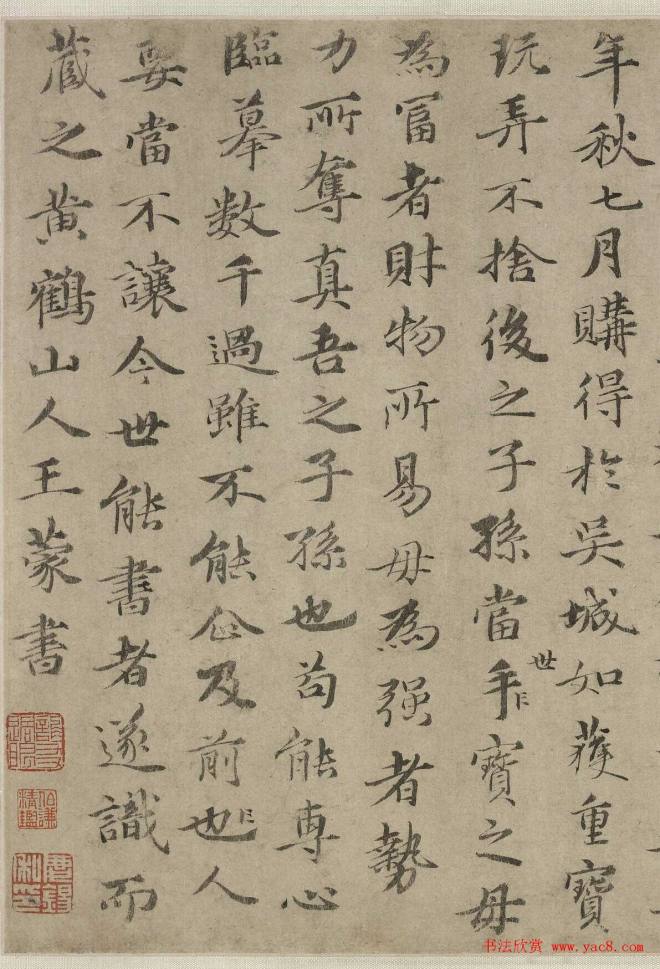 年秋七月購得於吳城如獲重寶
玩弄不捨後之子孫當手世寶之毋
為富者財物所易毋為强者勢
力所奪真吾之子孫也苟能専心
臨摹数千過雖不能企及前也人
要當不讓今世能書者遂識而
藏之黄鶴山人王蒙書
書法欣赏 www.yac8.com